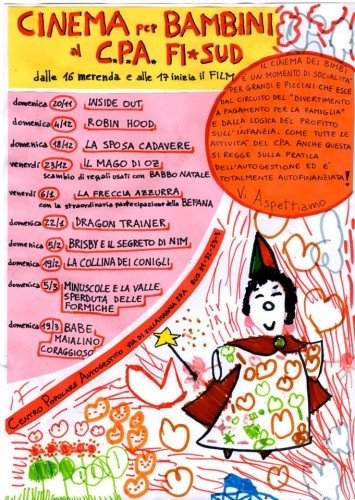 CINEMA PER BAMBINI
al C.P.A. FI★SUD
dalle 16 merenda e alle 17 inizia il FILM
domenica 20/11 INSIDE OUT
domenica 4/12 ROBIN HOOD
domenica 18/12 LA SPOSA CADAVERE
venerdì 23/12 IL MAGO DI OZ
scambio di regali usati con BABBO NATALE
venerdì 6/1 LA FRECCIA AZZURRA
con la straordinaria partecipazione della BEFANA
domenica 22/1 DRAGON TRAINER
domenica 5/2 BRISBY E IL SEGRETO DI NIM
domenica 19/2 LA COLLINA DEI CONIGLI
domenica 5/3 MINUSCULE E LA VALLE
SPERDUTA DELLE
FORMICHE
domenica 19/3 BABE
MAIALINO
CORAGGIOSO
IL CINEMA DEI BIMBI
È UN MOMENTO DI SOCIALITA'
PER GRANDI E PICCINI CHE ESCE
DAL CIRCUITO DEL "DIVERTIMENTO
A PAGAMENTO PER LA FAMIGLIA"
E DALLA LOGICA DEL PROFITTO
SULL'INFANZIA. COME TUTTE LE
ATTIVITA' DEL C.P.A. ANCHE QUESTA
SI REGGE SULLA PRATICA
DELL'AUTOGESTIONE ED E'
TOTALMENTE AUTOFINANZIATA!
Vi Aspettiamo
CENTRO POPOLARE AUTOGESTITO VIA DI VILLAMAGNA 27A BUS